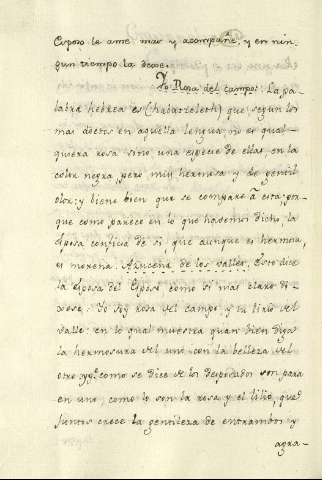 Esposo le ame mas y acompañe, y en nin-
gun tiempo la dexe.
Yo Rosa del campo: La pa-
labra hebrea es (habatzeleth) que segun los
mas doctos en aquella lengua, no es qual-
quiera rosa sino una especie de ellas, en la
color negra, pero mui hermosa y de gentil
olor: y biene bien que se compare á esta: por-
que como parece en lo que hasemos dicho, la
Esposa confiesa de si, que aunque es hermosa,
es morena. Azucena de los valles. Esto dice
la Esposa del Esposo como si mas claro di-
xese. Yo soy rosa del campo y tu lirio del
valle: en lo qual muestra quan bien diga
la hermosura del uno con la belleza del
otro: que como se dice de los desposados son para
en uno; como lo son la rosa y el lilio, que
juntos crece la gentileza de entrambos y
agra-